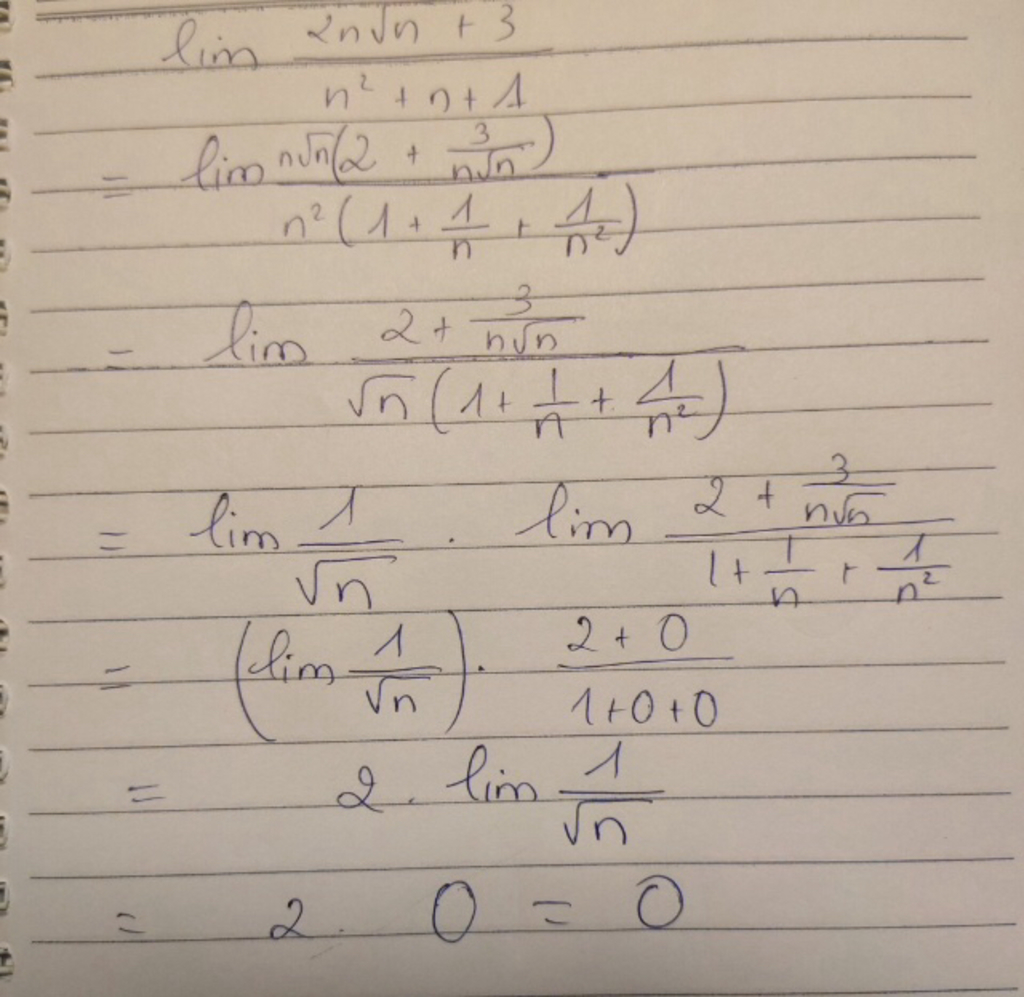 lim (2n√n + 3)/(n² + n + 1)
= lim (n√n(2 + 3/(n√n)))/(n²(1 + 1/n + 1/n²))
= lim (2 + 3/(n√n))/(√n(1 + 1/n + 1/n²))
= lim 1/√n · lim (2 + 3/(n√n))/(1 + 1/n + 1/n²)
= (lim 1/√n) · (2 + 0)/(1 + 0 + 0)
= 2 · lim 1/√n
= 2 · 0 = 0